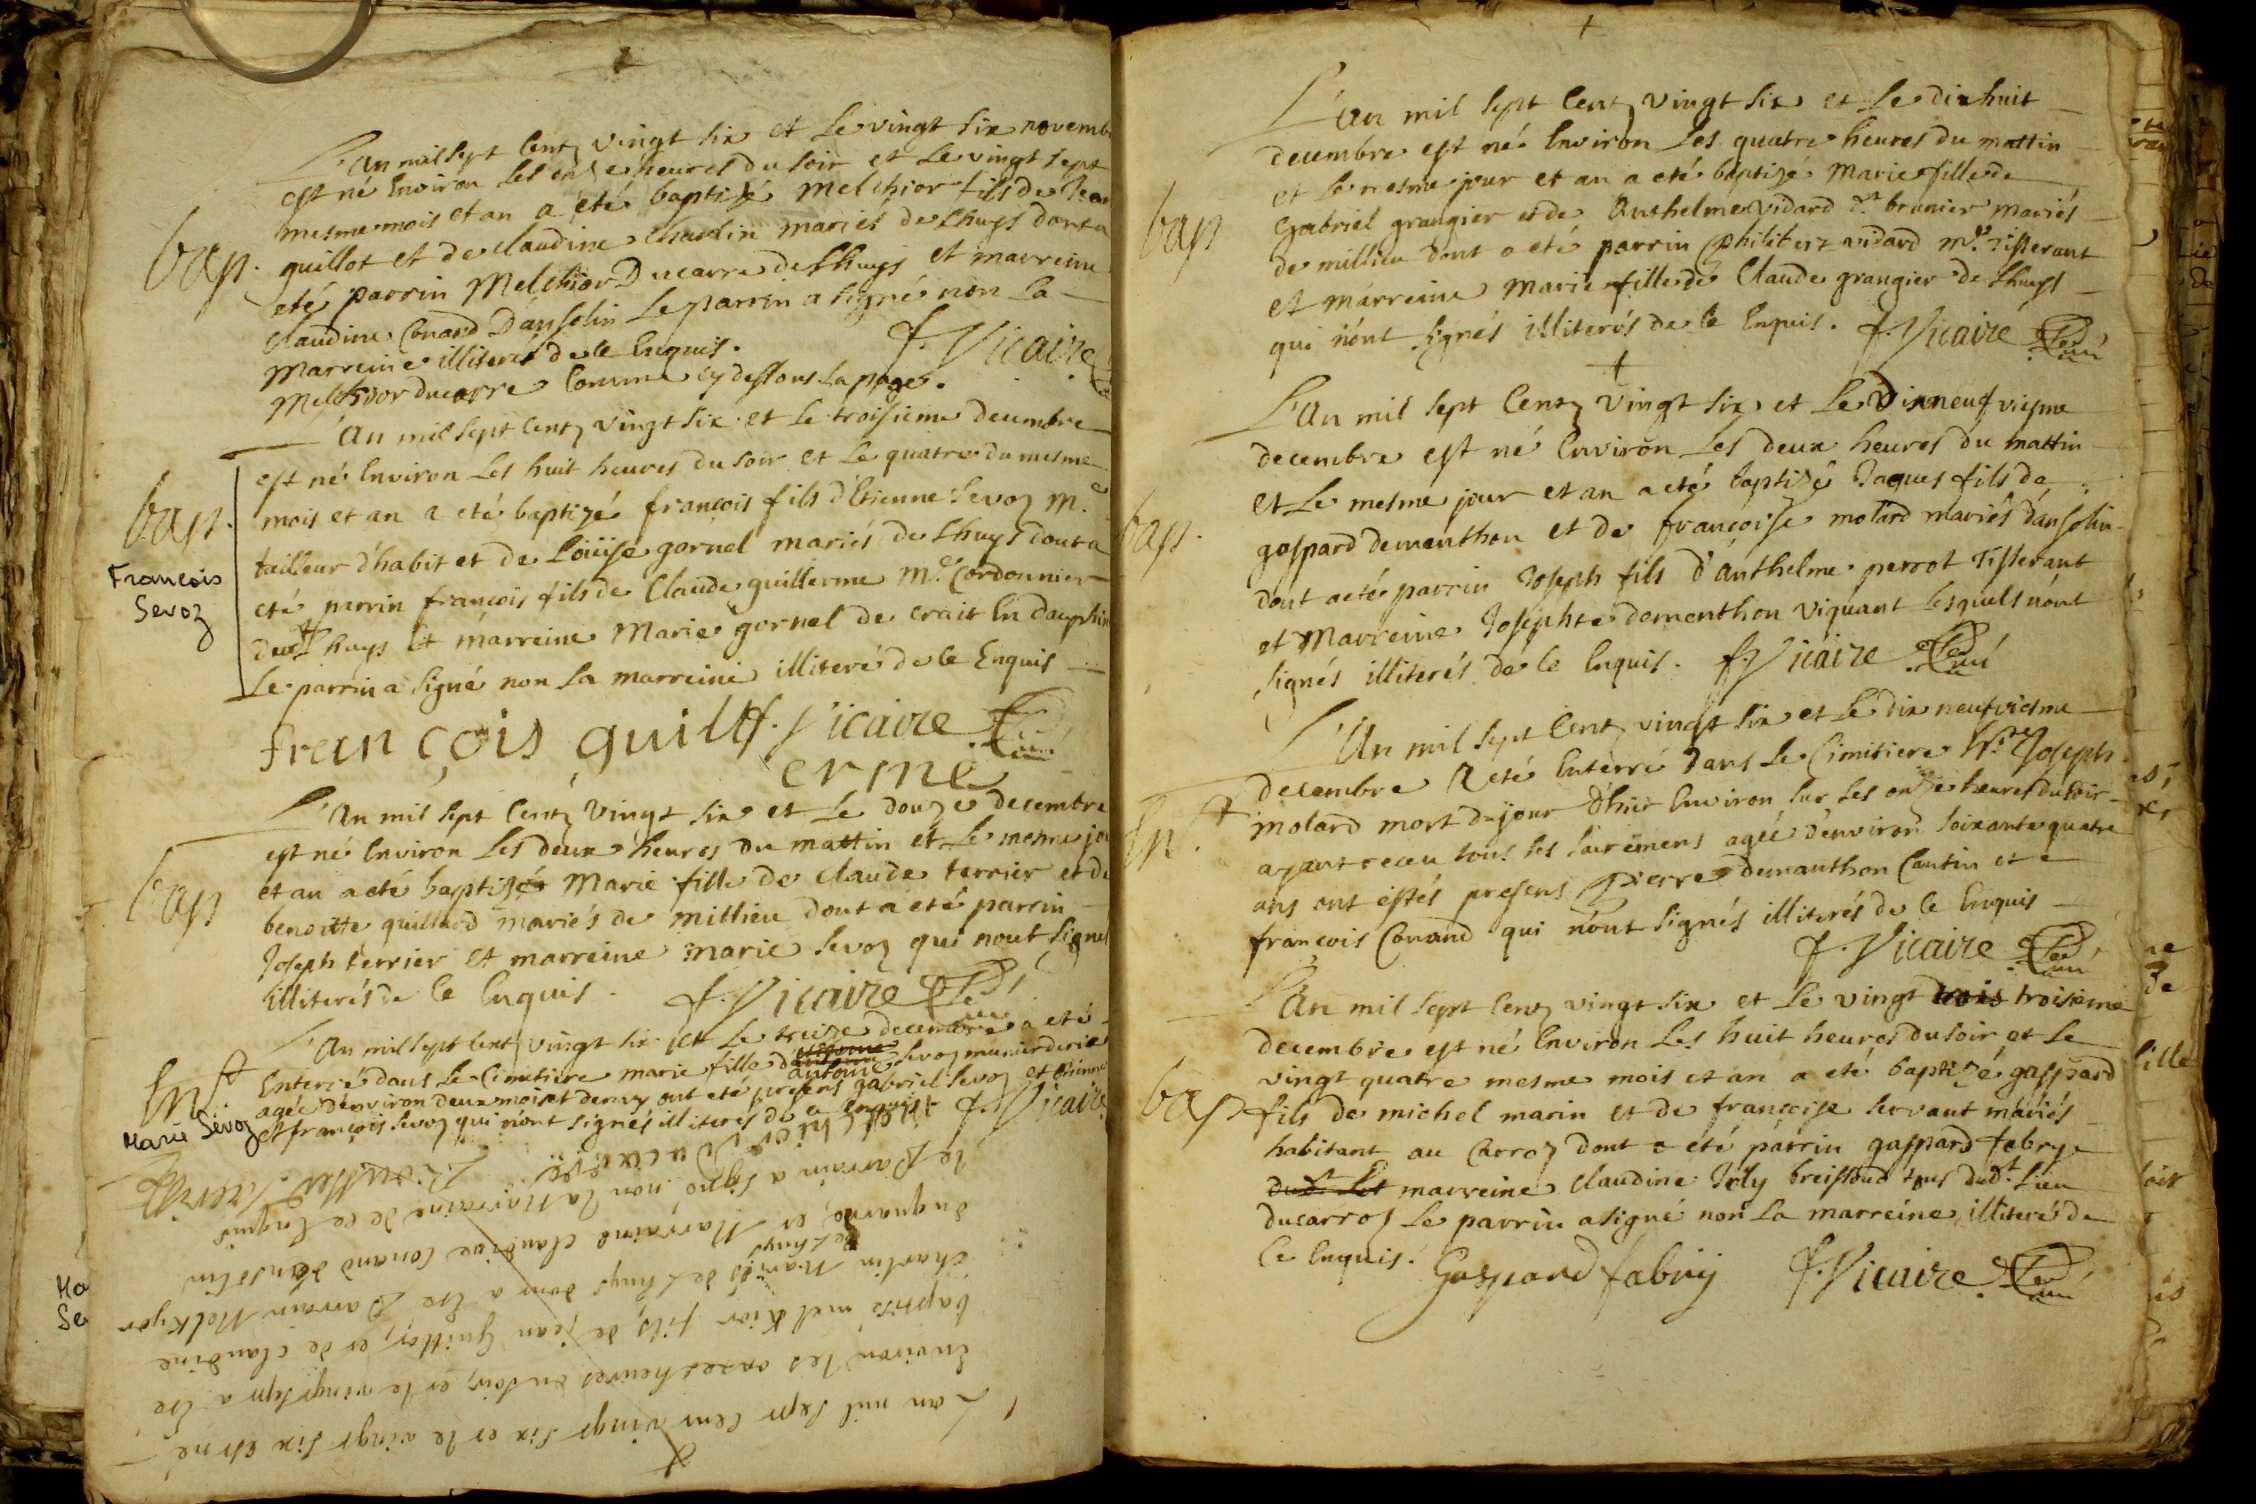 L'an mil sept Centz vingt six et Le vingt six novemb
est né Environ Les onze heures du soir et Le vingt sept
mesme mois et an a été baptizé Melchior fils de Jean
bap. guillot et de claudine Charlin mariés de Lhuys dont a
eté parrin Melchior Ducarre de Lhuys et marreine
claudine Conand D'ansolin Le parrin a signé non La
Marreine illiterée de ce Enquis. f. Vicaire
Melchior ducarre Comme cy dessous La page.
L'an mil sept Centz vingt six et Le troisieme decembre
est né Environ Les huit heures du soir et Le quatre du mesme
bap. mois et an a eté baptizé françois fils d'Etienne Sevoz Me
François tailleur d'habit et de Loüise gornel mariés de Lhuys dont a
Sevoz eté parrin françois fils de Claude guillerme Me Cordonnier
de Lhuys et marreine Marie gornel de crait En dauphin
Le parrin a signé non La marreine illiteré de ce Enquis
françois guill f. Vicaire
erme
L'an mil sept Centz vingt six et Le douze decembre
est né Environ Les deux heures du mattin et Le mesme jou
bap et an a eté baptizé Marie fille de claude terrier et de
benoitte quillard mariés de millieu dont a eté parrin
Joseph terrier et marreine marie Sevoz qui nont signé
illiterés de ce Enquis. f. Vicaire
L'an mil sept Centz vingt six et Le treize decembre a eté
Ent Enterré dans Le Cimitiere marie fille d'antoine Sevoz
Marie Sevoz agée d'environ deux mois et demy ont eté presens gabriel Sevoz et Etienne
et françois Sevoz qui n'ont signés illiterés de ce Enquis f. Vicaire
L'an mil sept Cent vingt six et le vingt six est né
Environ les onzes heures du soir, et le vingt sept a été
baptisé melkior fils, de jean Guilloz, et de claudine
charlin Mariés de Lhuys dont a été Parrain Melkyor
duquarre, de Lhuys et Marraine claudine Conand dansolin
le Parrain a signé non la Marraine de ce Enquis
Melchior Ducarre
L'an mil sept Centz vingt six et Le dix huit
decembre est né Environ Les quatre heures du mattin
et Le mesme jour et an a eté baptizé Marie fille de
bap Gabriel grangier et de Anthelme vidard dt brunier mariés
de millieu dont a eté parrin Philibert vidard Me Tisserant
et marreine Marie fille de Claude grangier de Lhuys
qui n'ont signés illiterés de ce Enquis. f. Vicaire
L'an mil sept Centz vingt six et Le Dixneufviesme
decembre est né Environ Les deux heures du mattin
et Le mesme jour et an a eté baptizé Jaques fils de
bap. gaspard dementhon et de françoise molard mariés d'ansolin
dont a eté parrin Joseph fils d'anthelme perrot Tisserant
et Marreine Josephte dementhon viquant Lesquels n'ont
signés illiterés de ce Enquis. f. Vicaire
L'An mil sept Centz vingt six et Le dix neufviesme
decembre A eté Enterré dans Le Cimitiere Joseph
Ent molard mort du jour d'hier Environ sur Les onze heures du soir
ayant receu tous les sacremens agée d'environ soixante quatre
ans ont estés presens Pierre demanthon Cantin et
françois Conand qui n'ont signés illiterés de ce Enquis
f. Vicaire
L'an mil sept Centz vingt six et Le vingt trois troisieme
decembre est né Environ Les huit heures du soir et Le
vingt quatre mesme mois et an a eté baptizé gaspard
bap fils de michel marin et de françoise servant mariés
habitant au Carroz dont a eté parrin gaspard fabry
dudt Lieu marreine claudine Joly breissoud tous dudt Lieu
du carroz Le parrin a signé non La marreine illiteré de
ce Enquis. Gaspard fabry f. Vicaire